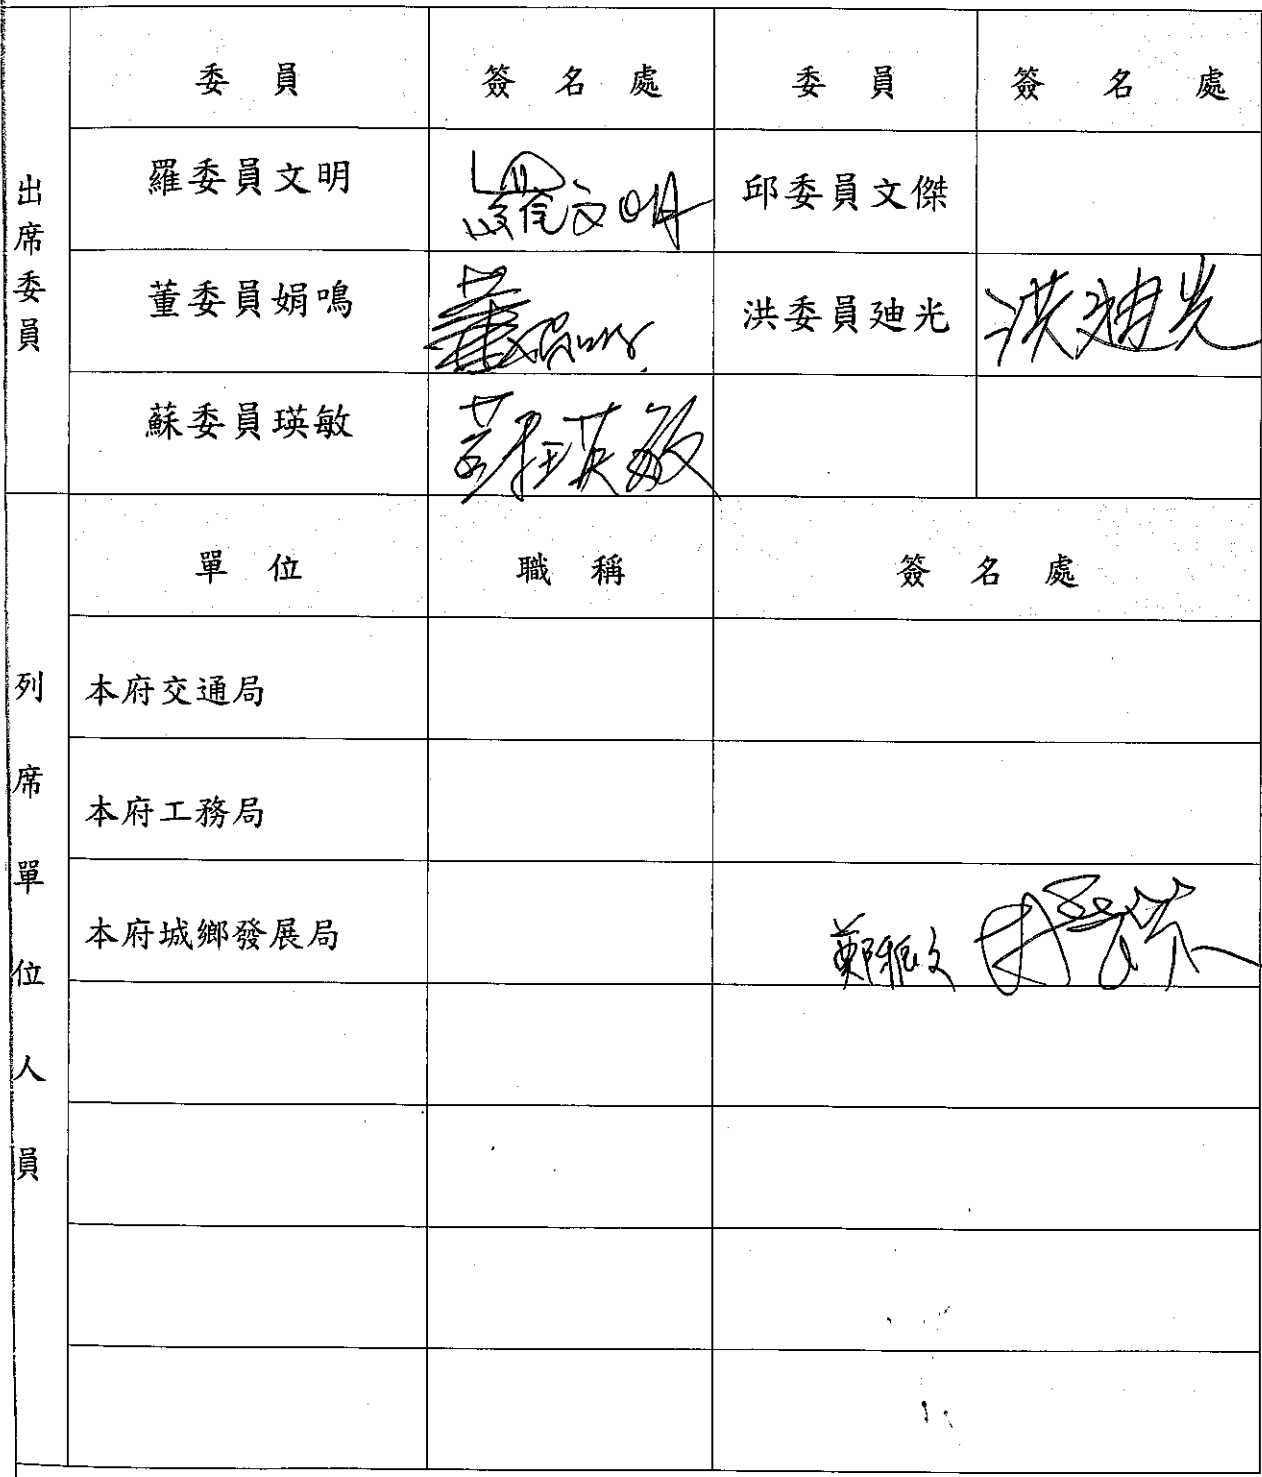 出席委員
委員 簽名處 委員 簽名處
羅委員文明 羅文明 邱委員文傑
董委員娟鳴 董娟鳴 洪委員廸光 洪廸光
蘇委員瑛敏 蘇瑛敏
列席單位人員
單位 職稱 簽名處
本府交通局
本府工務局
本府城鄉發展局 鄭雅文